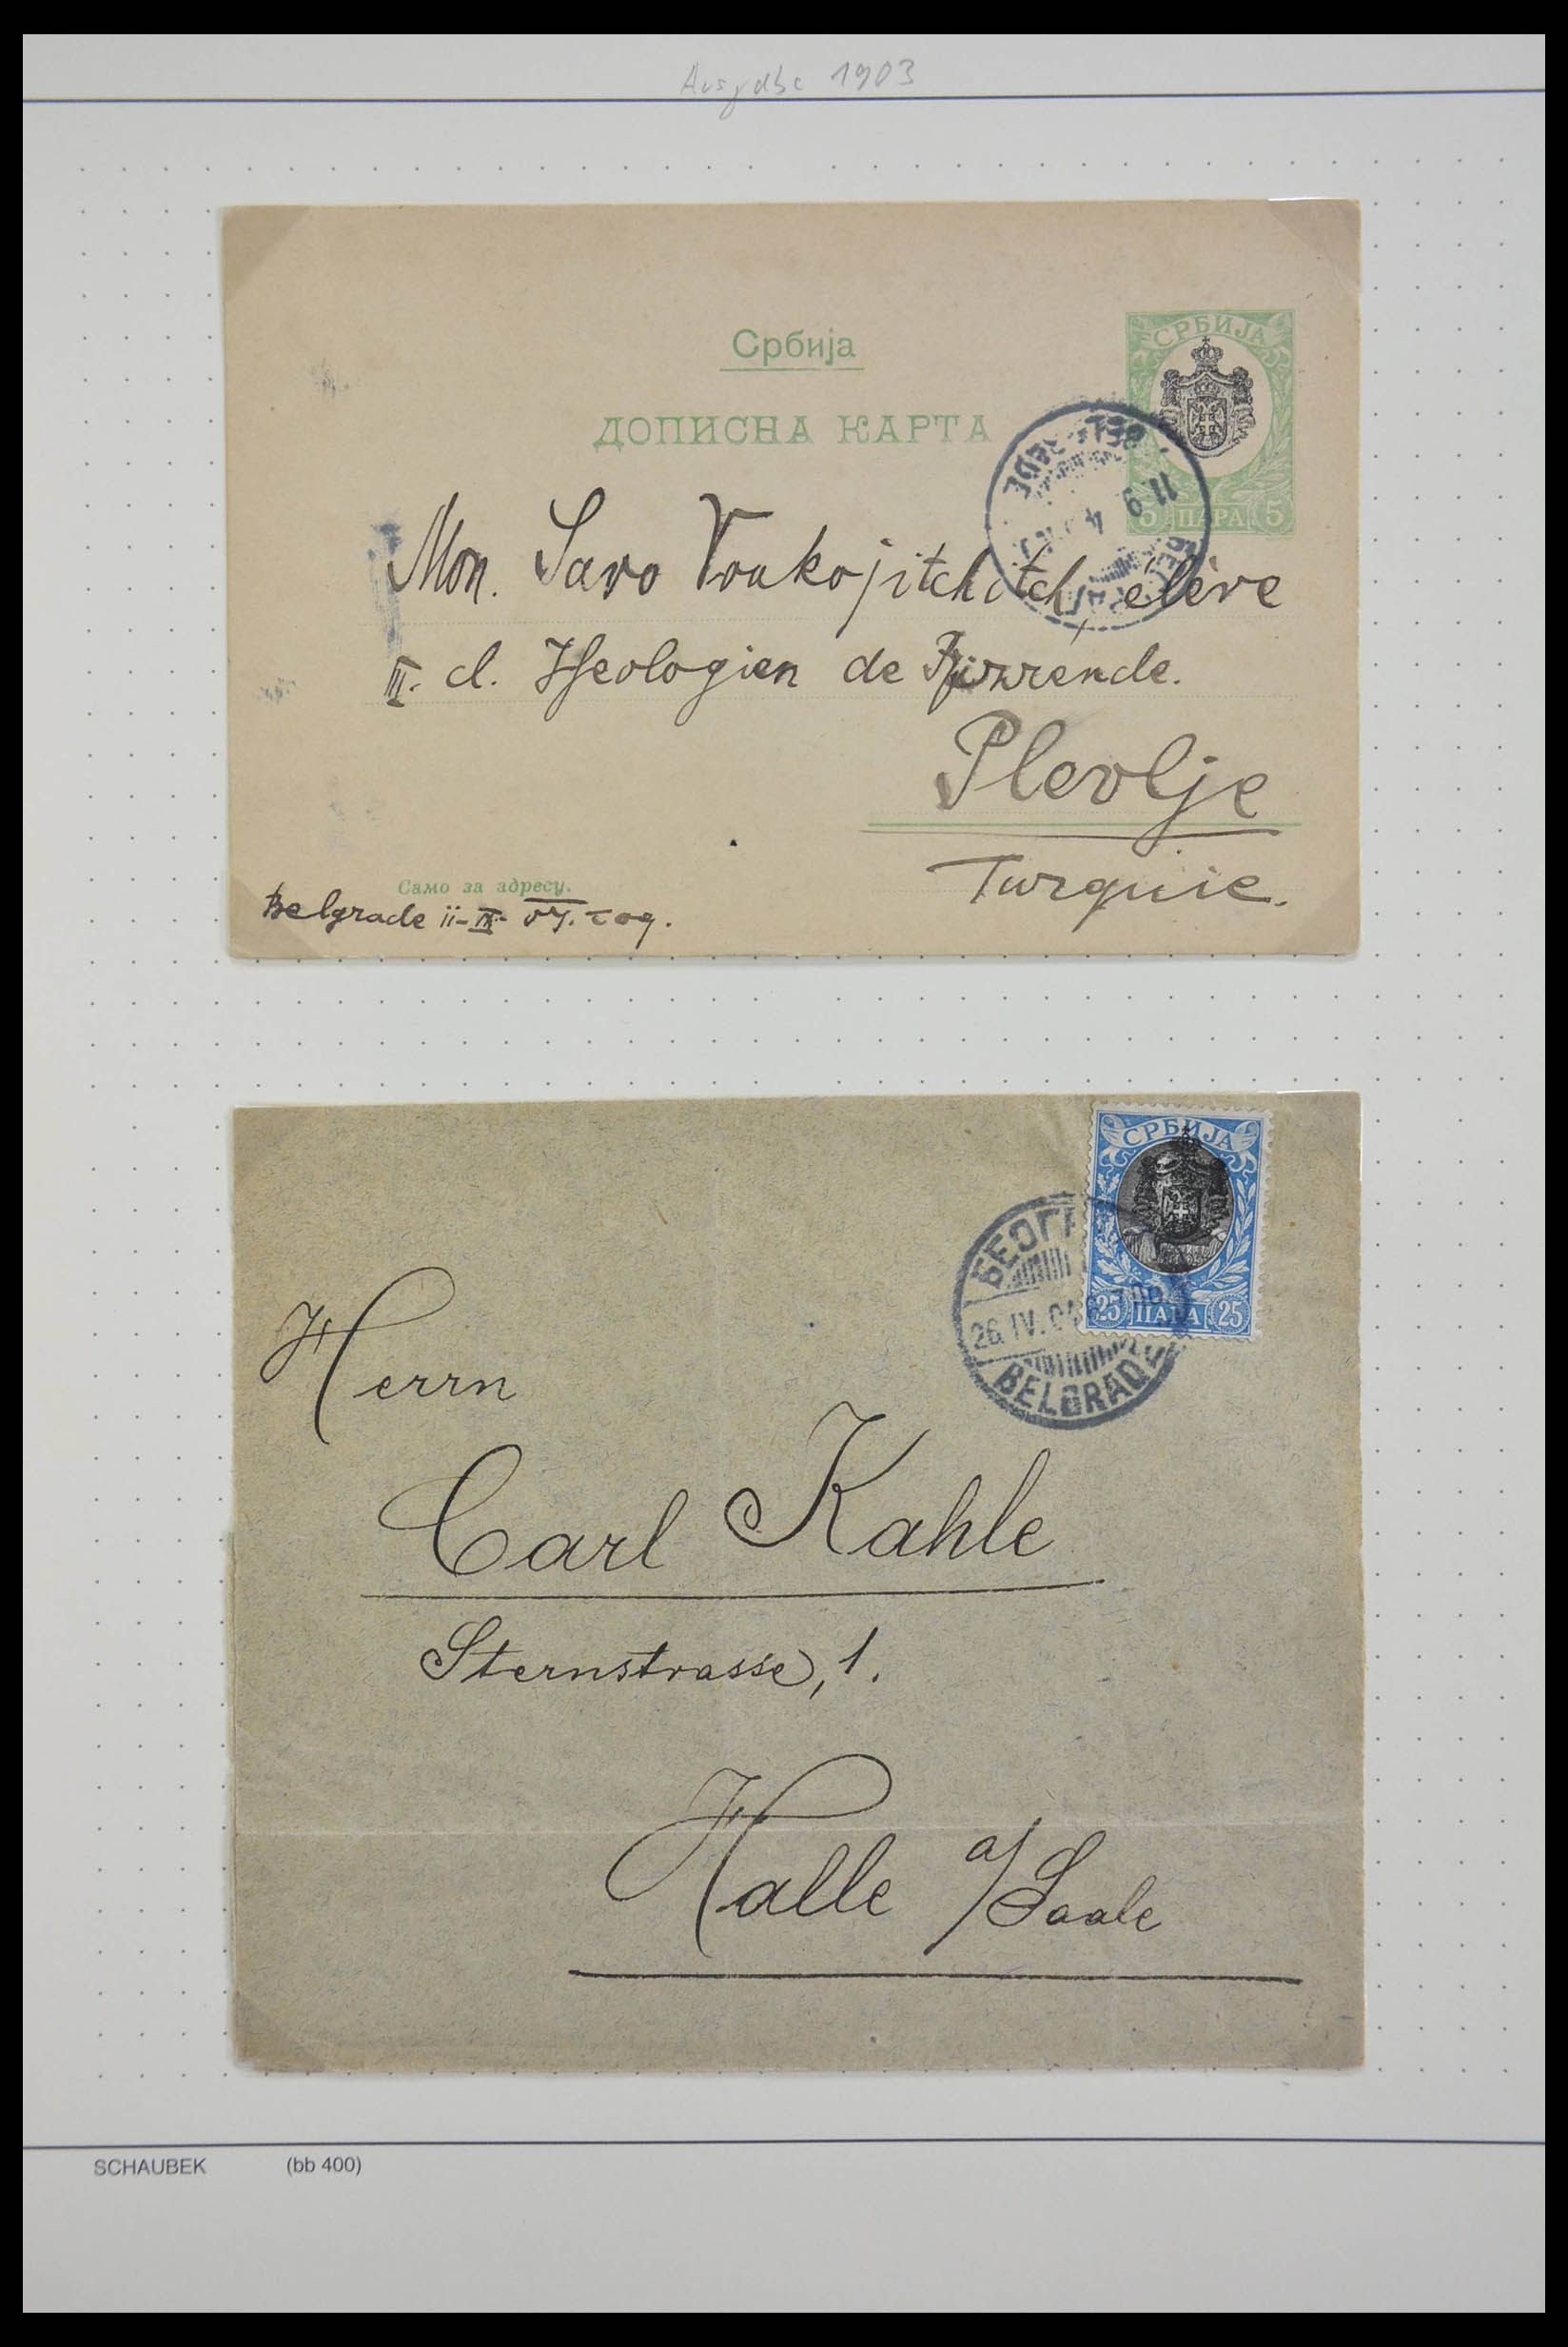 Ausgabe 1903
Србија
ДОПИСНА КАРТА
СРБИЈА
5 ПАРА 5
Mon. Savo Voukojitchitch, elève
III. cl. Théologien de
Plevlje
Turquie.
Само за адресу.
Belgrade ii-IX- 07. год.
СРБИЈА
25 ПАРА 25
БЕОГР
26.IV.
BELGRAD
Herrn
Carl Kahle
Sternstrasse, 1.
Halle a/Saale
SCHAUBEK (bb 400)